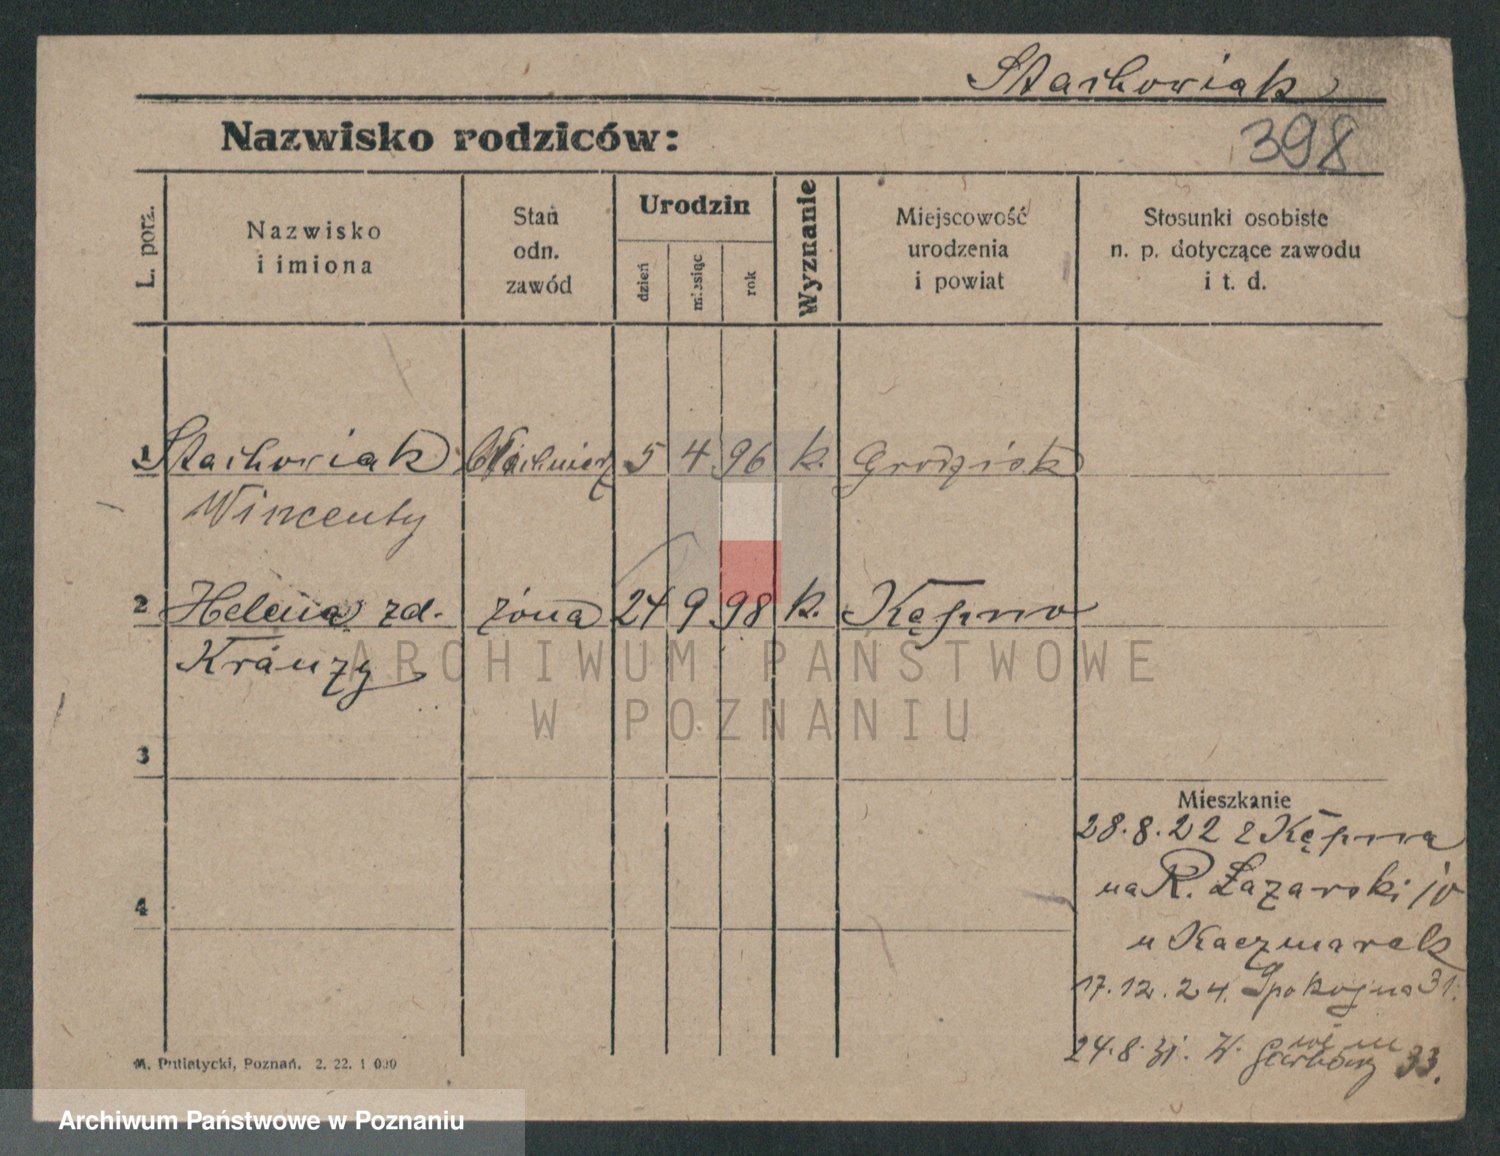 Stachowiak
Nazwisko rodziców:
398
L. porz.
Nazwisko
i imiona
Stan
odn.
zawód
Urodzin
dzień
miesiąc
rok
Wyznanie
Miejscowość
urodzenia
i powiat
Stosunki osobiste
n. p. dotyczące zawodu
i t. d.
1 Stachowiak 5 4 96 k. Grodzisk
Wincenty
2 Helena zd. żona 24 9 98 k. Kępno
Kranzy
ARCHIWUM PAŃSTWOWE
W POZNANIU
3
Mieszkanie
28.8.22 z Kępna
na R. Łazarski 10
u Kaczmarek
4
17.12.24. Spokojna 31.
24.8.31. W. Garbary 33.
M. Putiatycki, Poznań. 2. 22. 1 000
Archiwum Państwowe w Poznaniu